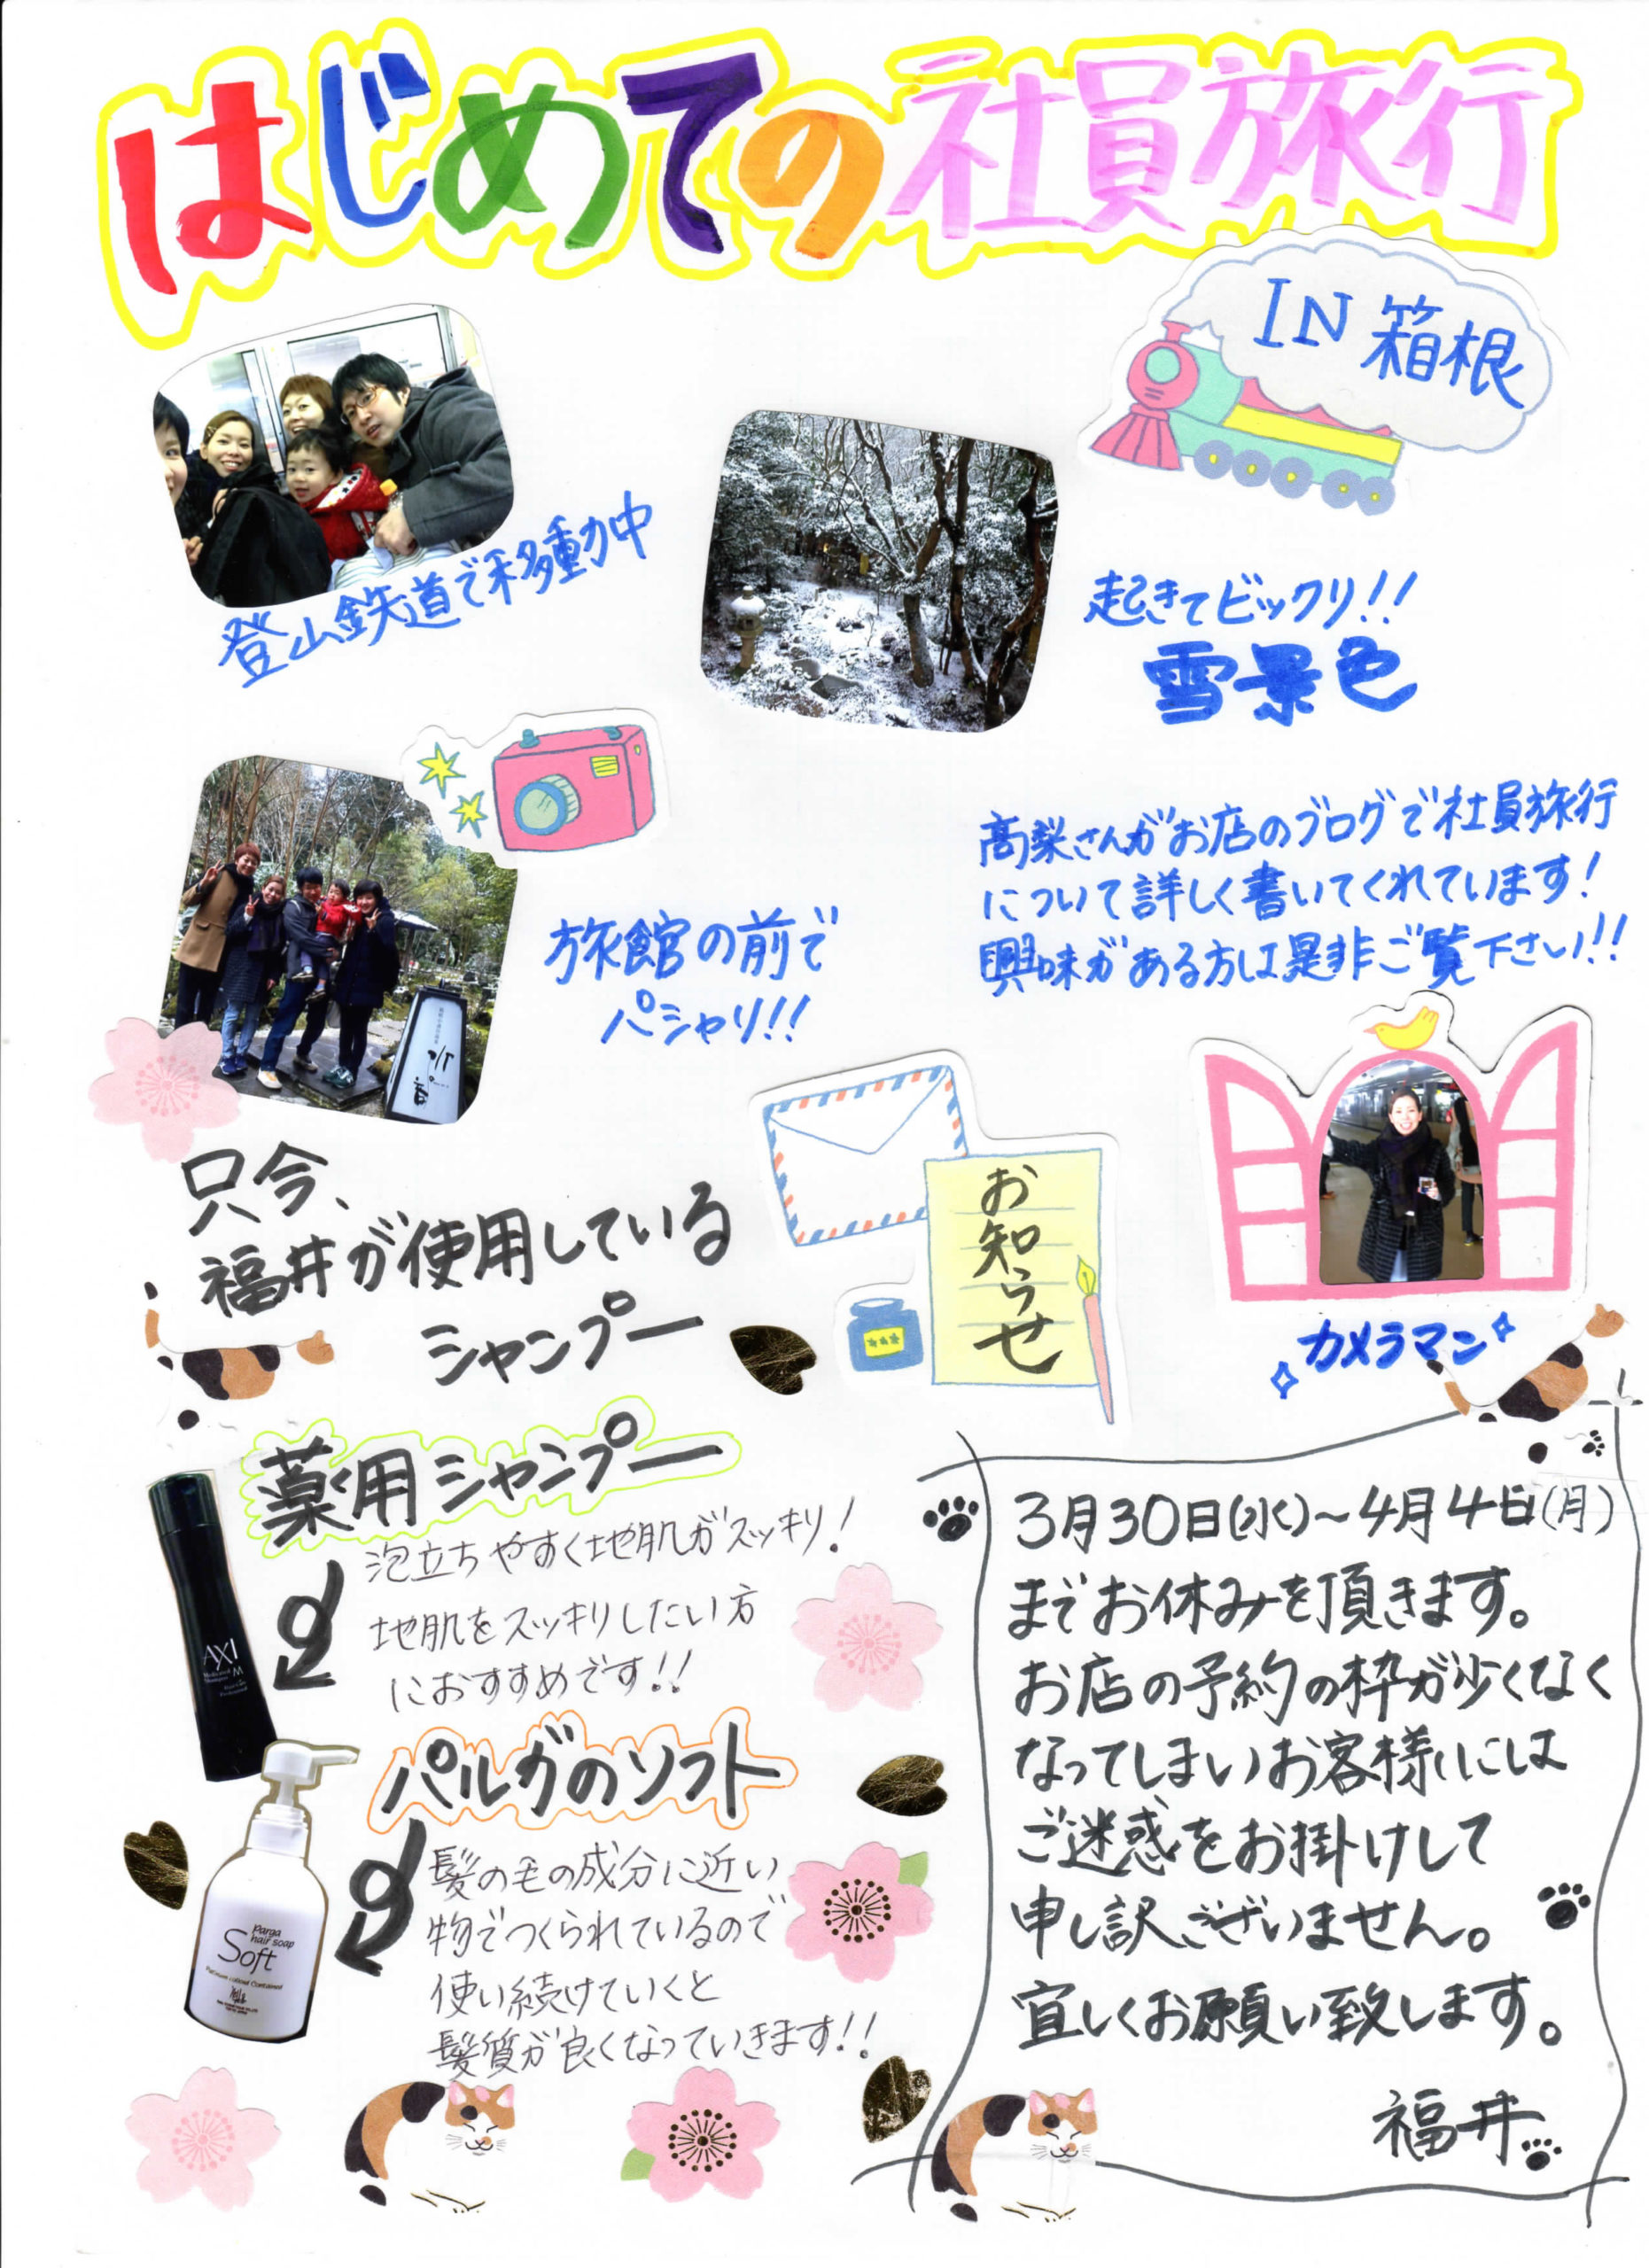 はじめての社員旅行
IN 箱根
登山鉄道で移動中
起きてビックリ!!
雪景色
旅館の前で
パシャリ!!
高梨さんがお店のブログで社員旅行
について詳しく書いてくれています!
興味がある方は是非ご覧下さい!!
カメラマン
只今、
福井が使用している
シャンプー
薬用シャンプー
泡立ちやすく地肌がスッキリ!
地肌をスッキリしたい方
におすすめです!!
AXI
M
パルガのソフト
髪の毛の成分に近い
物でつくられているので
使い続けていくと
髪質が良くなっていきます!!
Parga
hair soap
Soft
お知らせ
3月30日(水)~4月4日(月)
までお休みを頂きます。
お店の予約の枠が少くなく
なってしまいお客様にには
ご迷惑をお掛けして
申し訳ございません。
宜しくお願い致します。
福井